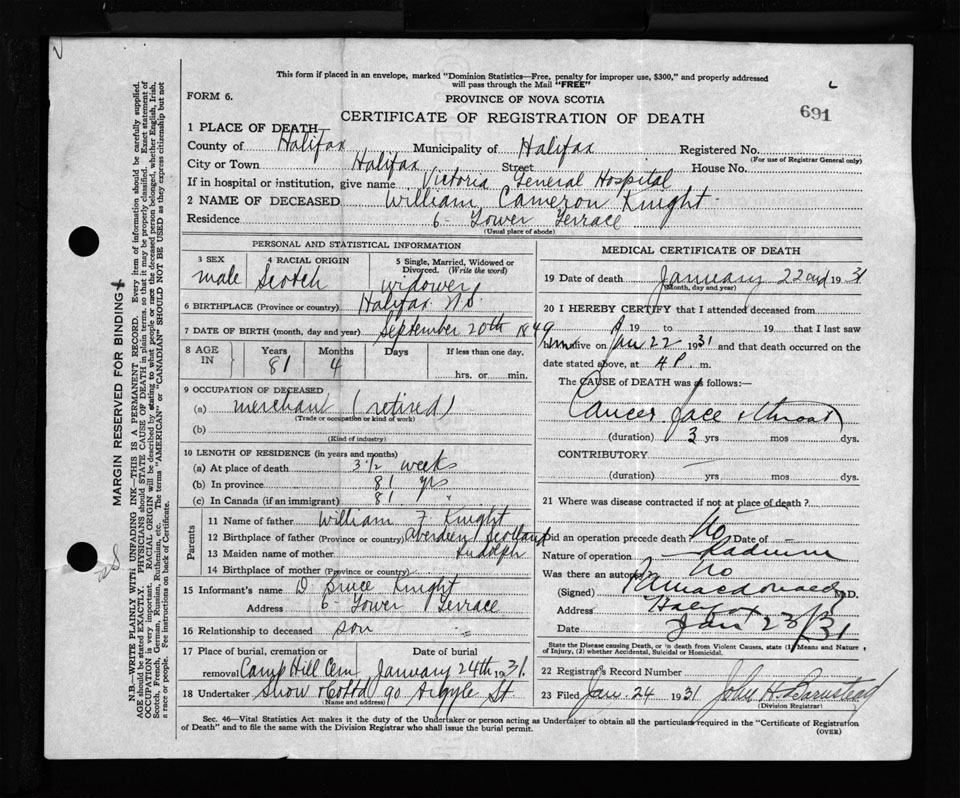 This form if placed in an envelope, marked "Dominion Statistics—Free, penalty for improper use, $300," and properly addressed
will pass through the Mail "FREE"
FORM 6.
PROVINCE OF NOVA SCOTIA
691
CERTIFICATE OF REGISTRATION OF DEATH
1 PLACE OF DEATH
County of Halifax Municipality of Halifax Registered No.
(For use of Registrar General only)
City or Town Halifax Street House No.
If in hospital or institution, give name Victoria General Hospital
2 NAME OF DECEASED William Cameron Knight
Residence 6 Tower Terrace
(Usual place of abode)
PERSONAL AND STATISTICAL INFORMATION
3 SEX 4 RACIAL ORIGIN 5 Single, Married, Widowed or
Divorced. (Write the word)
male Scotch widower
6 BIRTHPLACE (Province or country) Halifax N.S.
7 DATE OF BIRTH (month, day and year) September 20th 1849
8 AGE IN Years Months Days If less than one day.
81 4 hrs. or min.
9 OCCUPATION OF DECEASED
(a) merchant (retired)
(Trade or occupation or kind of work)
(b)
(Kind of industry)
10 LENGTH OF RESIDENCE (in years and months)
(a) At place of death 3 1/2 weeks
(b) In province 81 yrs
(c) In Canada (if an immigrant) 81 "
Parents
11 Name of father William F Knight
12 Birthplace of father (Province or country) Aberdeen Scotland
13 Maiden name of mother Rudolph
14 Birthplace of mother (Province or country)
15 Informant's name D Bruce Knight
Address 6 Tower Terrace
16 Relationship to deceased son
17 Place of burial, cremation or Date of burial
removal Camp Hill Cem January 24th 1931
18 Undertaker Snow & Co Ltd 90 Argyle St
(Name and address)
MEDICAL CERTIFICATE OF DEATH
19 Date of death January 22nd 1931
(Month, day and year)
20 I HEREBY CERTIFY that I attended deceased from
19 to 19 that I last saw
him alive on Jan 22 1931 and that death occurred on the
date stated above, at 4 P. m.
The CAUSE of DEATH was as follows:—
Cancer face & throat
(duration) 3 yrs mos dys.
CONTRIBUTORY
(duration) yrs mos dys.
21 Where was disease contracted if not at place of death ?
Did an operation precede death No ? Date of —
Nature of operation Radium
Was there an autopsy No
(Signed) Macdonald M.D.
Address Halifax
Date Jan 23/31
State the Disease causing Death, or in death from Violent Causes, state (1) Means and Nature
of Injury, (2) whether Accidental, Suicidal or Homicidal.
22 Registrar's Record Number
23 Filed Jan. 24 1931 John H. Barnstead
(Division Registrar)
Sec. 46—Vital Statistics Act makes it the duty of the Undertaker or person acting as Undertaker to obtain all the particulars required in the "Certificate of Registration
of Death" and to file the same with the Division Registrar who shall issue the burial permit.
(OVER)
MARGIN RESERVED FOR BINDING
N.B.—WRITE PLAINLY WITH UNFADING INK—THIS IS A PERMANENT RECORD. Every item of information should be carefully supplied.
AGE should be stated EXACTLY. PHYSICIANS should STATE CAUSE OF DEATH in plain terms, so that it may be properly classified. Exact statement of
OCCUPATION is very important. RACIAL ORIGIN will be described by stating to what people or race the deceased person belonged, whether English, Irish,
Scotch, French, German, Russian, Ruthenian, etc. The terms "AMERICAN" or "CANADIAN" SHOULD NOT BE USED as they express citizenship but not
a race or people. See instructions on back of Certificate.